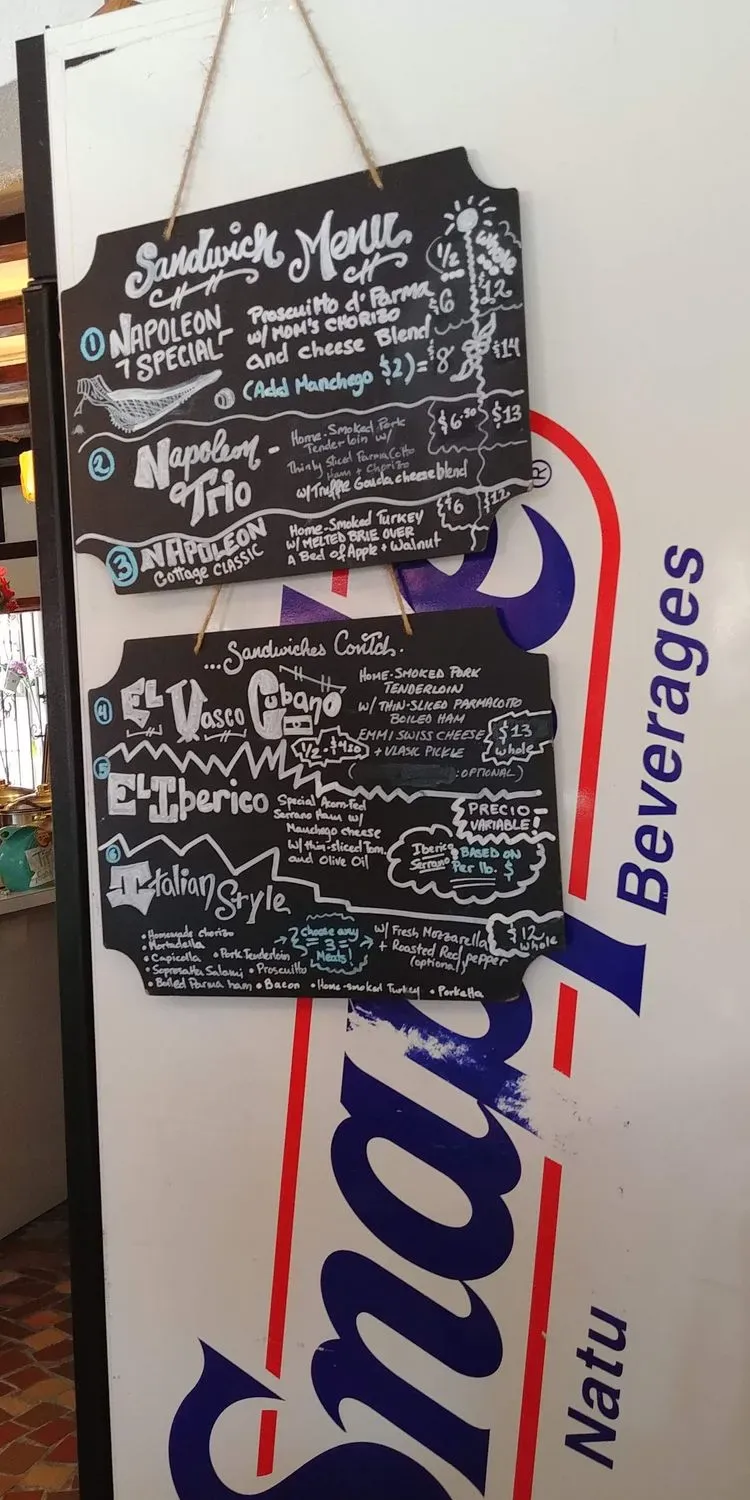 Sandwich Menu
1/2 whole
① NAPOLEON
SPECIAL
Prosciutto d' Parma
w/ MOM'S CHORIZO
and cheese Blend
(Add Manchego $2) =
$6 $12
$8 $14
② Napoleon -
Trio
Home-Smoked Pork
Tenderloin w/
Thinly Sliced Parma Cotto
Ham + Chorizo
w/ Truffle Gouda cheese blend
$6.50 $13
③ NAPOLEON
Cottage CLASSIC
Home-Smoked TURKEY
W/ MELTED BRIE OVER
A Bed of Apple + Walnut
$6 $12
...Sandwiches Contd.
④ EL Vasco Cubano
HOME-SMOKED PORK
TENDERLOIN
W/ THIN-SLICED PARMACOTTO
BOILED HAM
EMMI SWISS CHEESE
+ VLASIC PICKLE
( : OPTIONAL)
1/2
$13
whole
⑤ EL Iberico
Special Acorn-Feel
Serrano Ham w/
Manchego cheese
w/ thin-sliced Tom.
and Olive Oil
PRECIO
VARIABLE!
Iberico
Serrano
BASED ON
Per lb. $
⑥ Italian Style
• Homemade chorizo
• Mortadella
• Capicolla • Pork Tenderloin
• Sopresatta Salami • Prosciutto
• Boiled Parma ham • Bacon • Home-smoked Turkey • Porketta
Choose any
= 3 =
Meats!
w/ Fresh Mozzarella
+ Roasted Red pepper
(optional)
$12
whole
®
Beverages
Snap
Natu